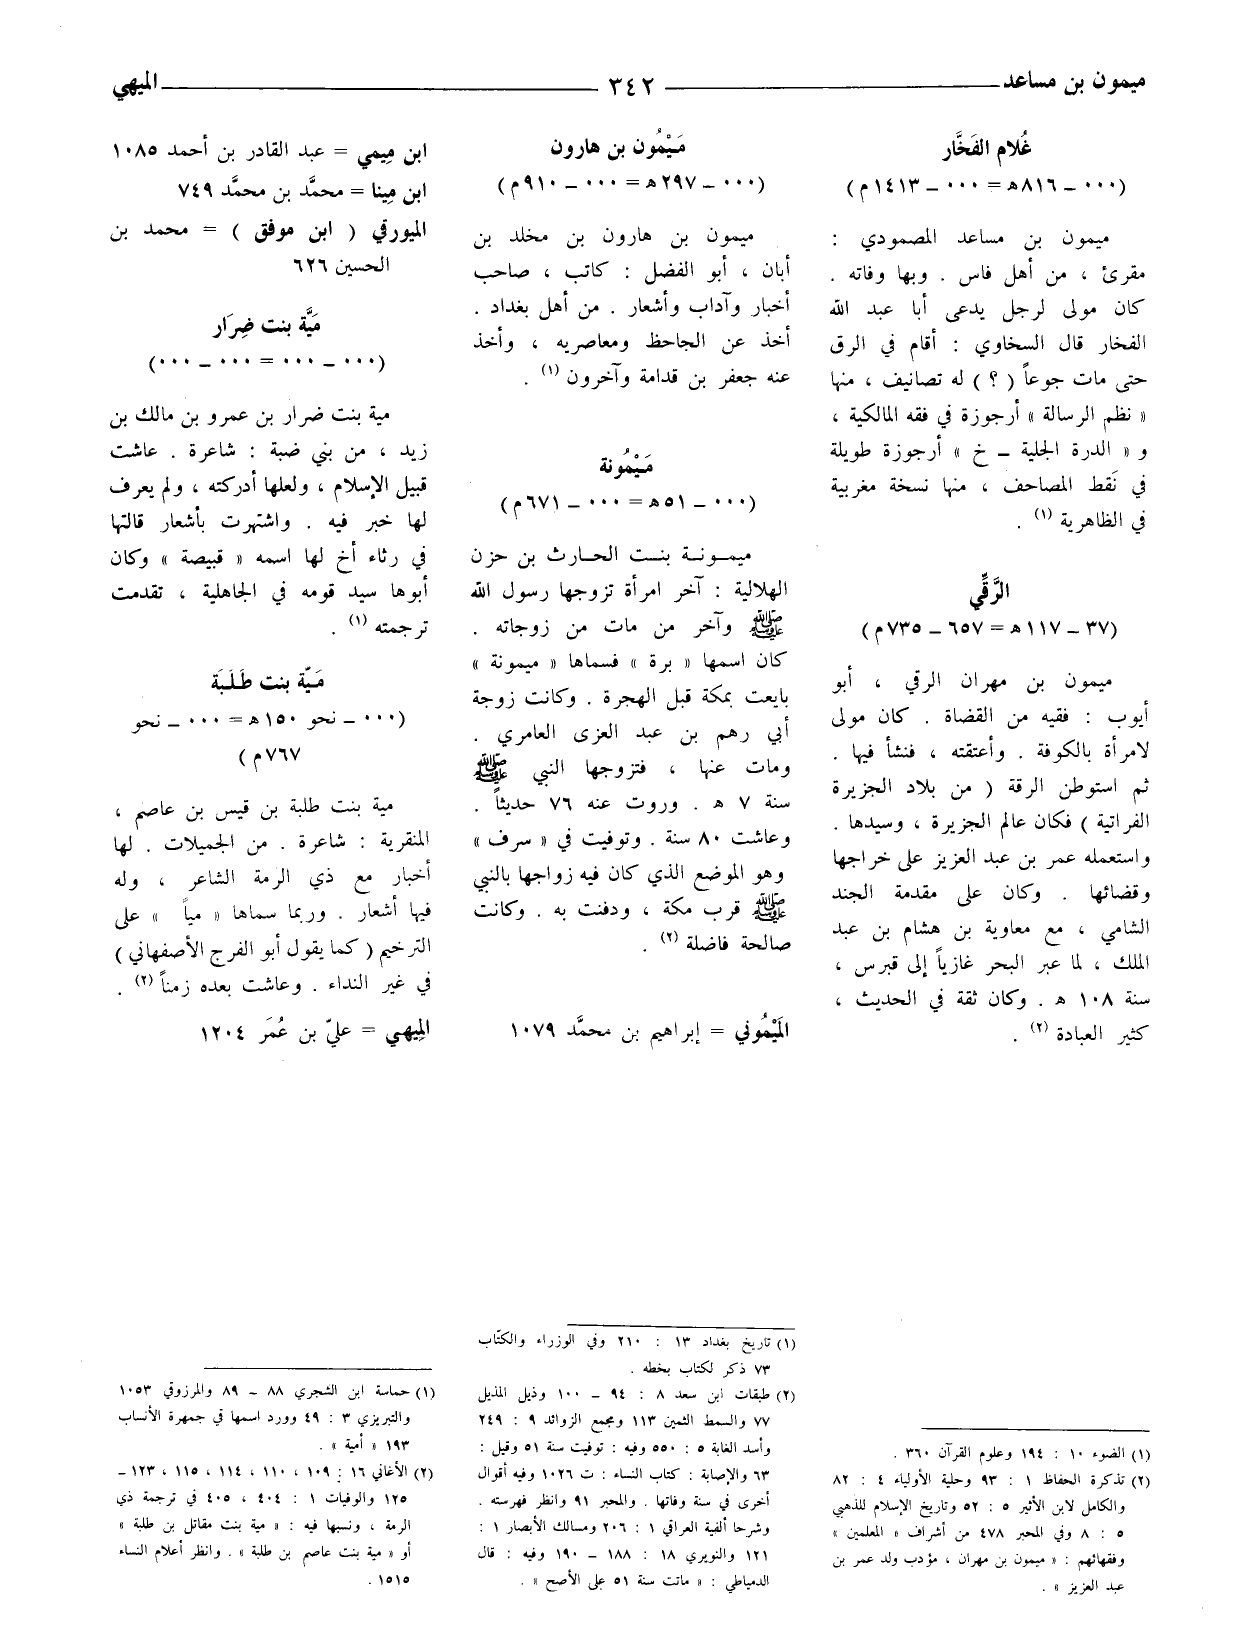 ميمون بن مساعد
٣٤٢
الميهي
غُلام الفَخَّار
(٠٠٠ ــ ٨١٦ هـ = ٠٠٠ ــ ١٤١٣ م)
ميمون بن مساعد المصمودي :
مقرئ ، من أهل فاس . وبها وفاته .
كان مولى لرجل يدعى أبا عبد الله
الفخار قال السخاوي : أقام في الرق
حتى مات جوعاً ( ؟ ) له تصانيف ، منها
« نظم الرسالة » أرجوزة في فقه المالكية ،
و « الدرة الجلية ــ خ » أرجوزة طويلة
في نَقط المصاحف ، منها نسخة مغربية
في الظاهرية (١) .
الرَّقِّي
(٣٧ ــ ١١٧ هـ = ٦٥٧ ــ ٧٣٥ م)
ميمون بن مهران الرقي ، أبو
أيوب : فقيه من القضاة . كان مولى
لامرأة بالكوفة . وأعتقته ، فنشأ فيها .
ثم استوطن الرقة ( من بلاد الجزيرة
الفراتية ) فكان عالم الجزيرة ، وسيدها .
واستعمله عمر بن عبد العزيز على خراجها
وقضائها . وكان على مقدمة الجند
الشامي ، مع معاوية بن هشام بن عبد
الملك ، لما عبر البحر غازياً إلى قبرس ،
سنة ١٠٨ هـ . وكان ثقة في الحديث ،
كثير العبادة (٢) .
(١) الضوء ١٠ : ١٩٤ وعلوم القرآن ٣٦٠ .
(٢) تذكرة الحفاظ ١ : ٩٣ وحلية الأولياء ٤ : ٨٢
والكامل لابن الأثير ٥ : ٥٢ وتاريخ الإسلام للذهبي
٥ : ٨ وفي المحبر ٤٧٨ من أشراف « المعلمين »
وفقهائهم : « ميمون بن مهران ، مؤدب ولد عمر بن
عبد العزيز » .
مَيْمُون بن هارون
(٠٠٠ ــ ٢٩٧ هـ = ٠٠٠ ــ ٩١٠ م)
ميمون بن هارون بن مخلد بن
أبان ، أبو الفضل : كاتب ، صاحب
أخبار وآداب وأشعار . من أهل بغداد .
أخذ عن الجاحظ ومعاصريه ، وأخذ
عنه جعفر بن قدامة وآخرون (١) .
مَيْمُونة
(٠٠٠ ــ ٥١ هـ = ٠٠٠ ــ ٦٧١ م)
ميمونة بنت الحارث بن حزن
الهلالية : آخر امرأة تزوجها رسول الله
ﷺ وآخر من مات من زوجاته .
كان اسمها « برة » فسماها « ميمونة »
بايعت بمكة قبل الهجرة . وكانت زوجة
أبي رهم بن عبد العزى العامري .
ومات عنها ، فتزوجها النبي ﷺ
سنة ٧ هـ . وروت عنه ٧٦ حديثاً .
وعاشت ٨٠ سنة . وتوفيت في « سرف »
وهو الموضع الذي كان فيه زواجها بالنبي
ﷺ قرب مكة ، ودفنت به . وكانت
صالحة فاضلة (٢) .
المَيْمُوني = إبراهيم بن محمَّد ١٠٧٩
(١) تاريخ بغداد ١٣ : ٢١٠ وفي الوزراء والكتّاب
٧٣ ذكر لكتاب بخطه .
(٢) طبقات ابن سعد ٨ : ٩٤ ــ ١٠٠ وذيل المذيل
٧٧ والسمط الثمين ١١٣ ومجمع الزوائد ٩ : ٢٤٩
وأسد الغابة ٥ : ٥٥٠ وفيه : توفيت سنة ٥١ وقيل :
٦٣ والإصابة : كتاب النساء : ت ١٠٢٦ وفيه أقوال
أخرى في سنة وفاتها . والمحبر ٩١ وانظر فهرسته .
وشرحا ألفية العراقي ١ : ٢٠٦ ومسالك الأبصار ١ :
١٢١ والنويري ١٨ : ١٨٨ ــ ١٩٠ وفيه : قال
الدمياطي : « ماتت سنة ٥١ على الأصح » .
ابن مِيمي = عبد القادر بن أحمد ١٠٨٥
ابن مِينا = محمَّد بن محمَّد ٧٤٩
الميورقي ( ابن موفق ) = محمد بن
الحسين ٦٢٦
مَيَّة بنت ضِرَار
(٠٠٠ ــ ٠٠٠ = ٠٠٠ ــ ٠٠٠)
مية بنت ضرار بن عمرو بن مالك بن
زيد ، من بني ضبة : شاعرة . عاشت
قبيل الإسلام ، ولعلها أدركته ، ولم يعرف
لها خبر فيه . واشتهرت بأشعار قالتها
في رثاء أخ لها اسمه « قبيصة » وكان
أبوها سيد قومه في الجاهلية ، تقدمت
ترجمته (١) .
مَيّة بنت طَلَبَة
(٠٠٠ ــ نحو ١٥٠ هـ = ٠٠٠ ــ نحو
٧٦٧ م)
مية بنت طلبة بن قيس بن عاصم ،
المنقرية : شاعرة . من الجميلات . لها
أخبار مع ذي الرمة الشاعر ، وله
فيها أشعار . وربما سماها « مياً » على
الترخيم ( كما يقول أبو الفرج الأصفهاني )
في غير النداء . وعاشت بعده زمناً (٢) .
المِيهي = عليّ بن عُمَر ١٢٠٤
(١) حماسة ابن الشجري ٨٨ ــ ٨٩ والمرزوقي ١٠٥٣
والتبريزي ٣ : ٤٩ وورد اسمها في جمهرة الأنساب
١٩٣ « أمية » .
(٢) الأغاني ١٦ : ١٠٩ ، ١١٠ ، ١١٤ ، ١١٥ ، ١٢٣ ــ
١٢٥ والوفيات ١ : ٤٠٤ ، ٤٠٥ في ترجمة ذي
الرمة ، ونسبها فيه : « مية بنت مقاتل بن طلبة »
أو « مية بنت عاصم بن طلبة » . وانظر أعلام النساء
١٥١٥ .